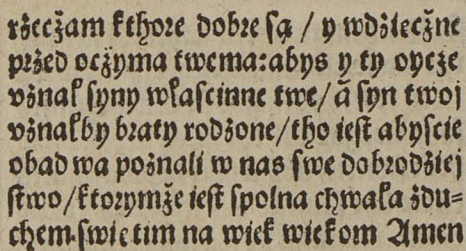 rzeczam kthore dobre są / y wdzięczne
przed oczyma twema: abys y ty oycże
vznał syny włascinne twe / ã syn twoj
vznałby braty rodzone / tho iest abyscie
obadwa poznali w nas swe dobrodziej
stwo / ktorymże iest spolna chwała zdu=
chem swiętim na wiek wiekom Amen